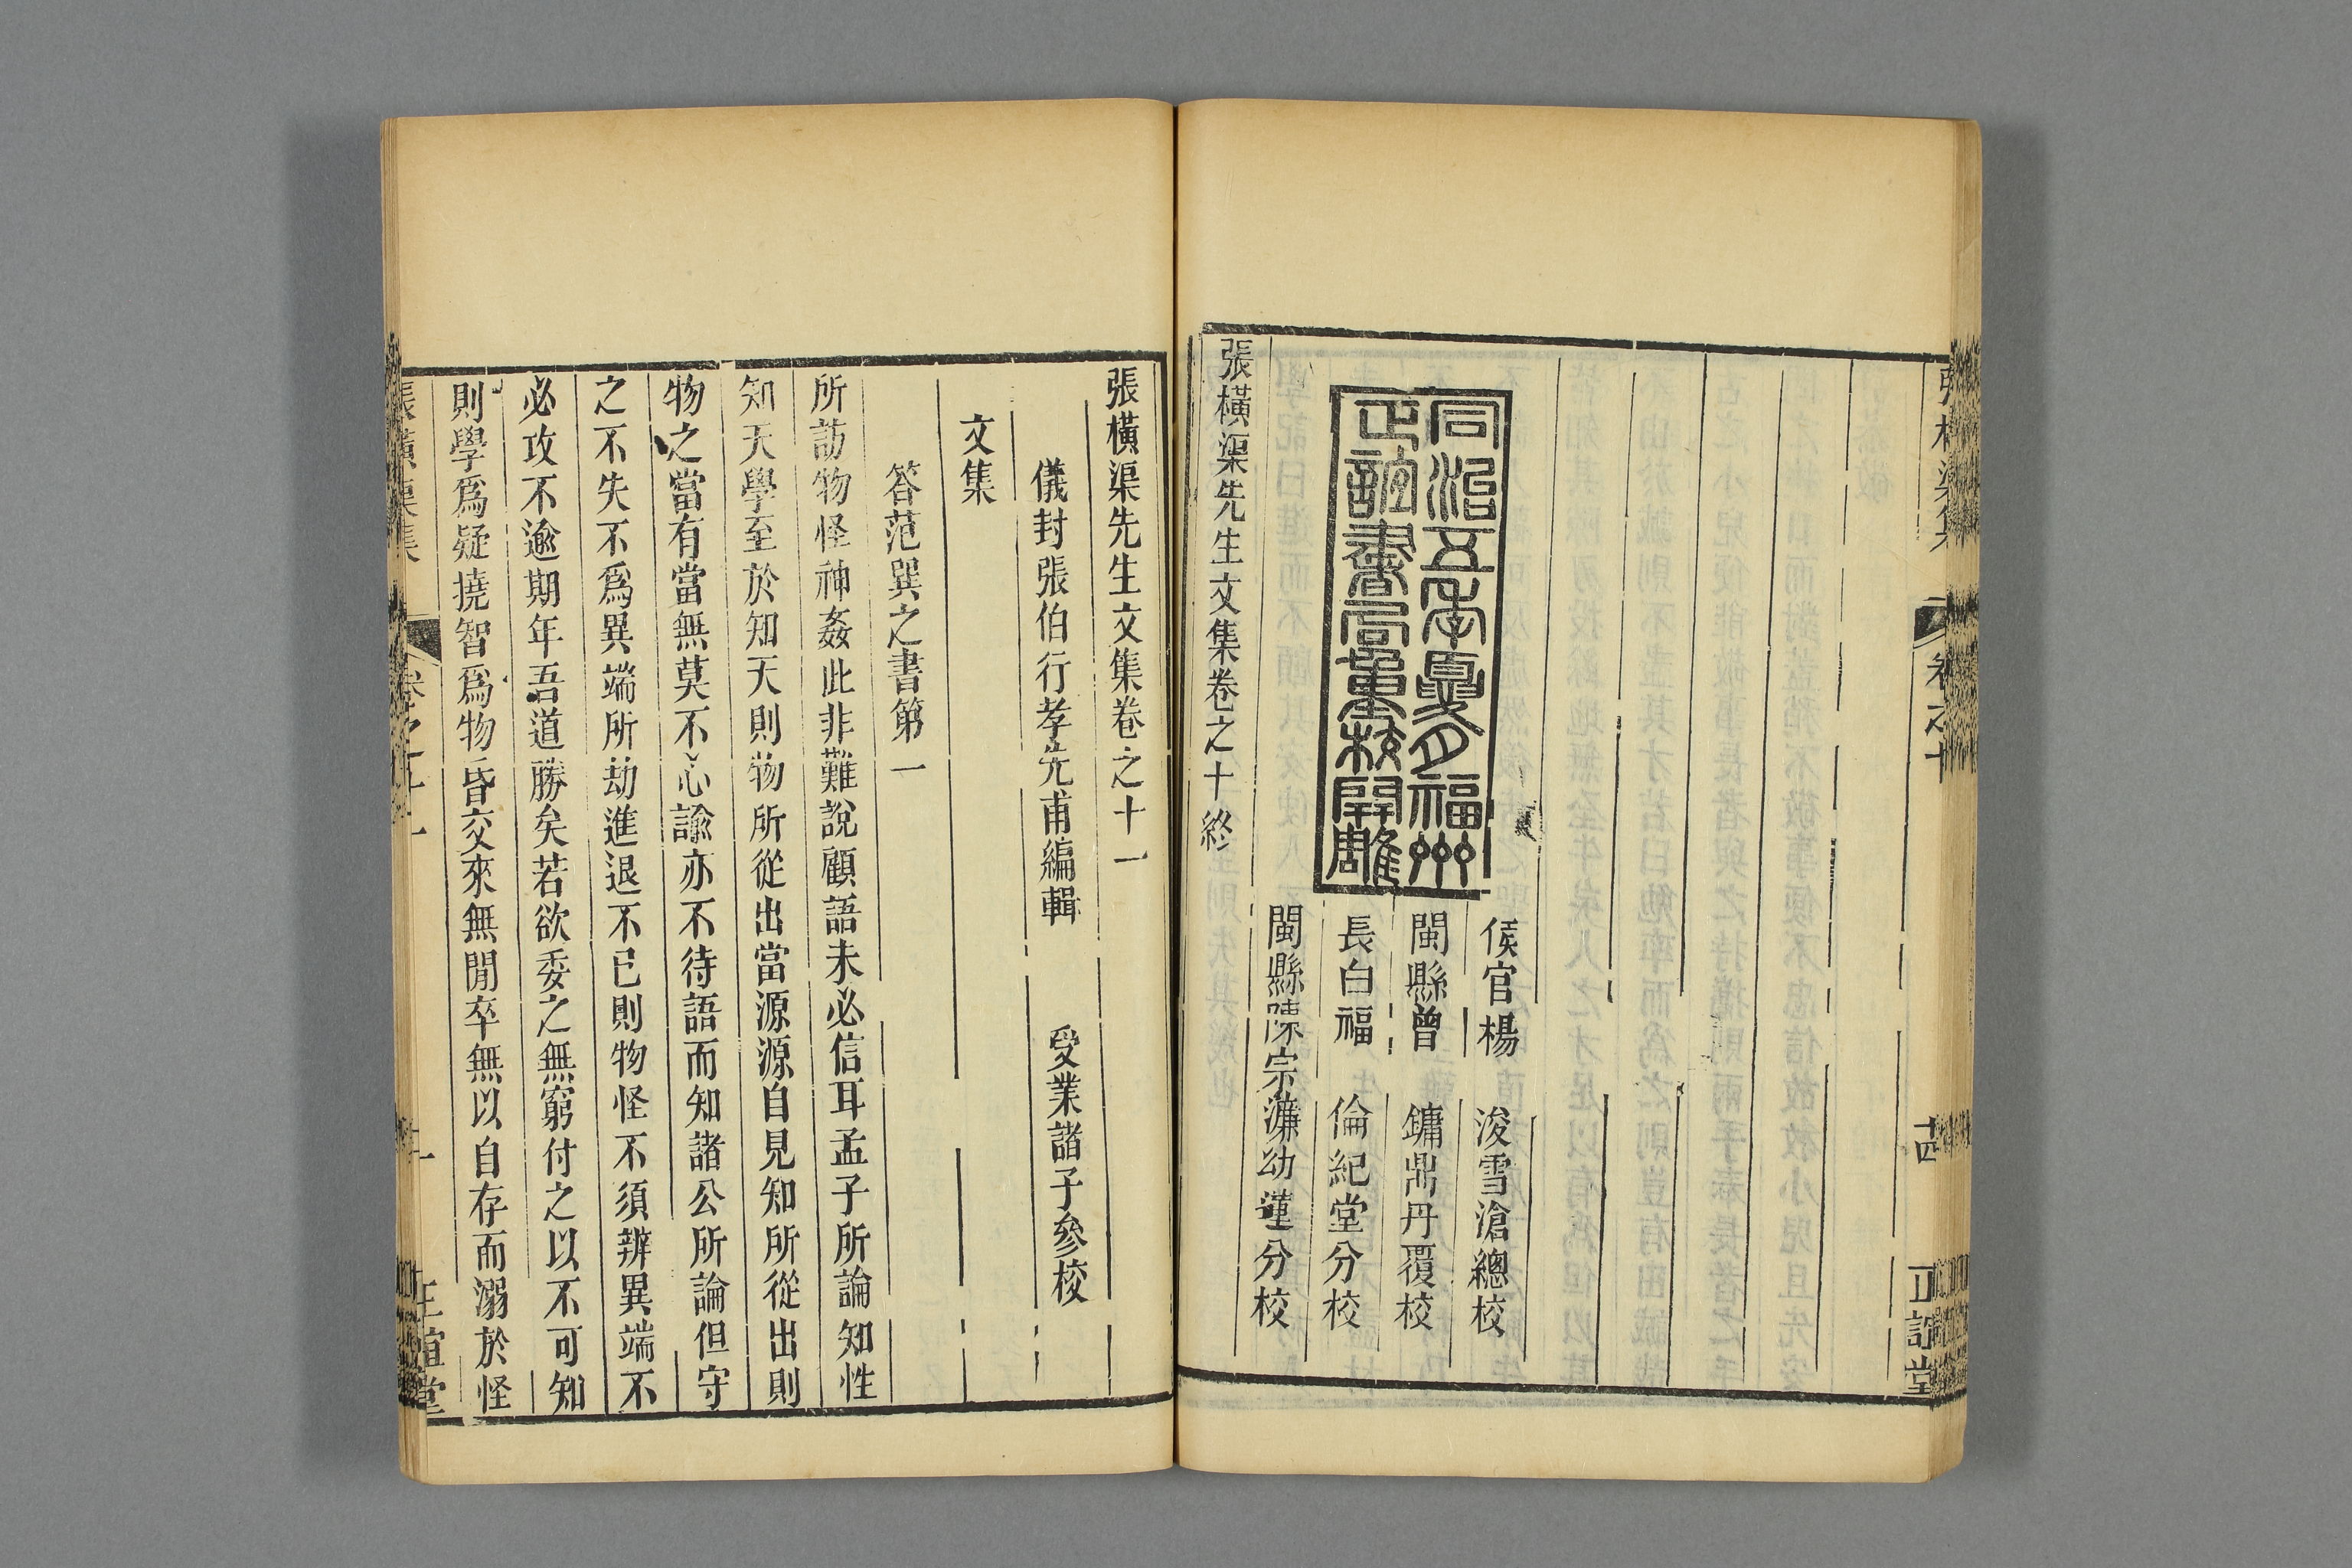 同治五年夏月福州
正誼書局重校開雕
侯官楊　浚雪滄總校
閩縣曾　鏞鼎丹覆校
長白福　倫紀堂分校
閩縣陳宗濂幼蓮分校
張橫渠先生文集卷之十終
卷之十
十四
正誼堂
張橫渠先生文集卷之十一
儀封張伯行孝先甫編輯　受業諸子參校
文集
答范巽之書第一
所訪物怪神姦此非難說顧語未必信耳孟子所論知性
知天學至於知天則物所從出當源源自見知所從出則
物之當有當無莫不心諭亦不待語而知諸公所論但守
之不失不爲異端所劫進退不已則物怪不須辨異端不
必攻不逾期年吾道勝矣若欲委之無窮付之以不可知
則學爲疑撓智爲物昏交來無閒卒無以自存而溺於怪